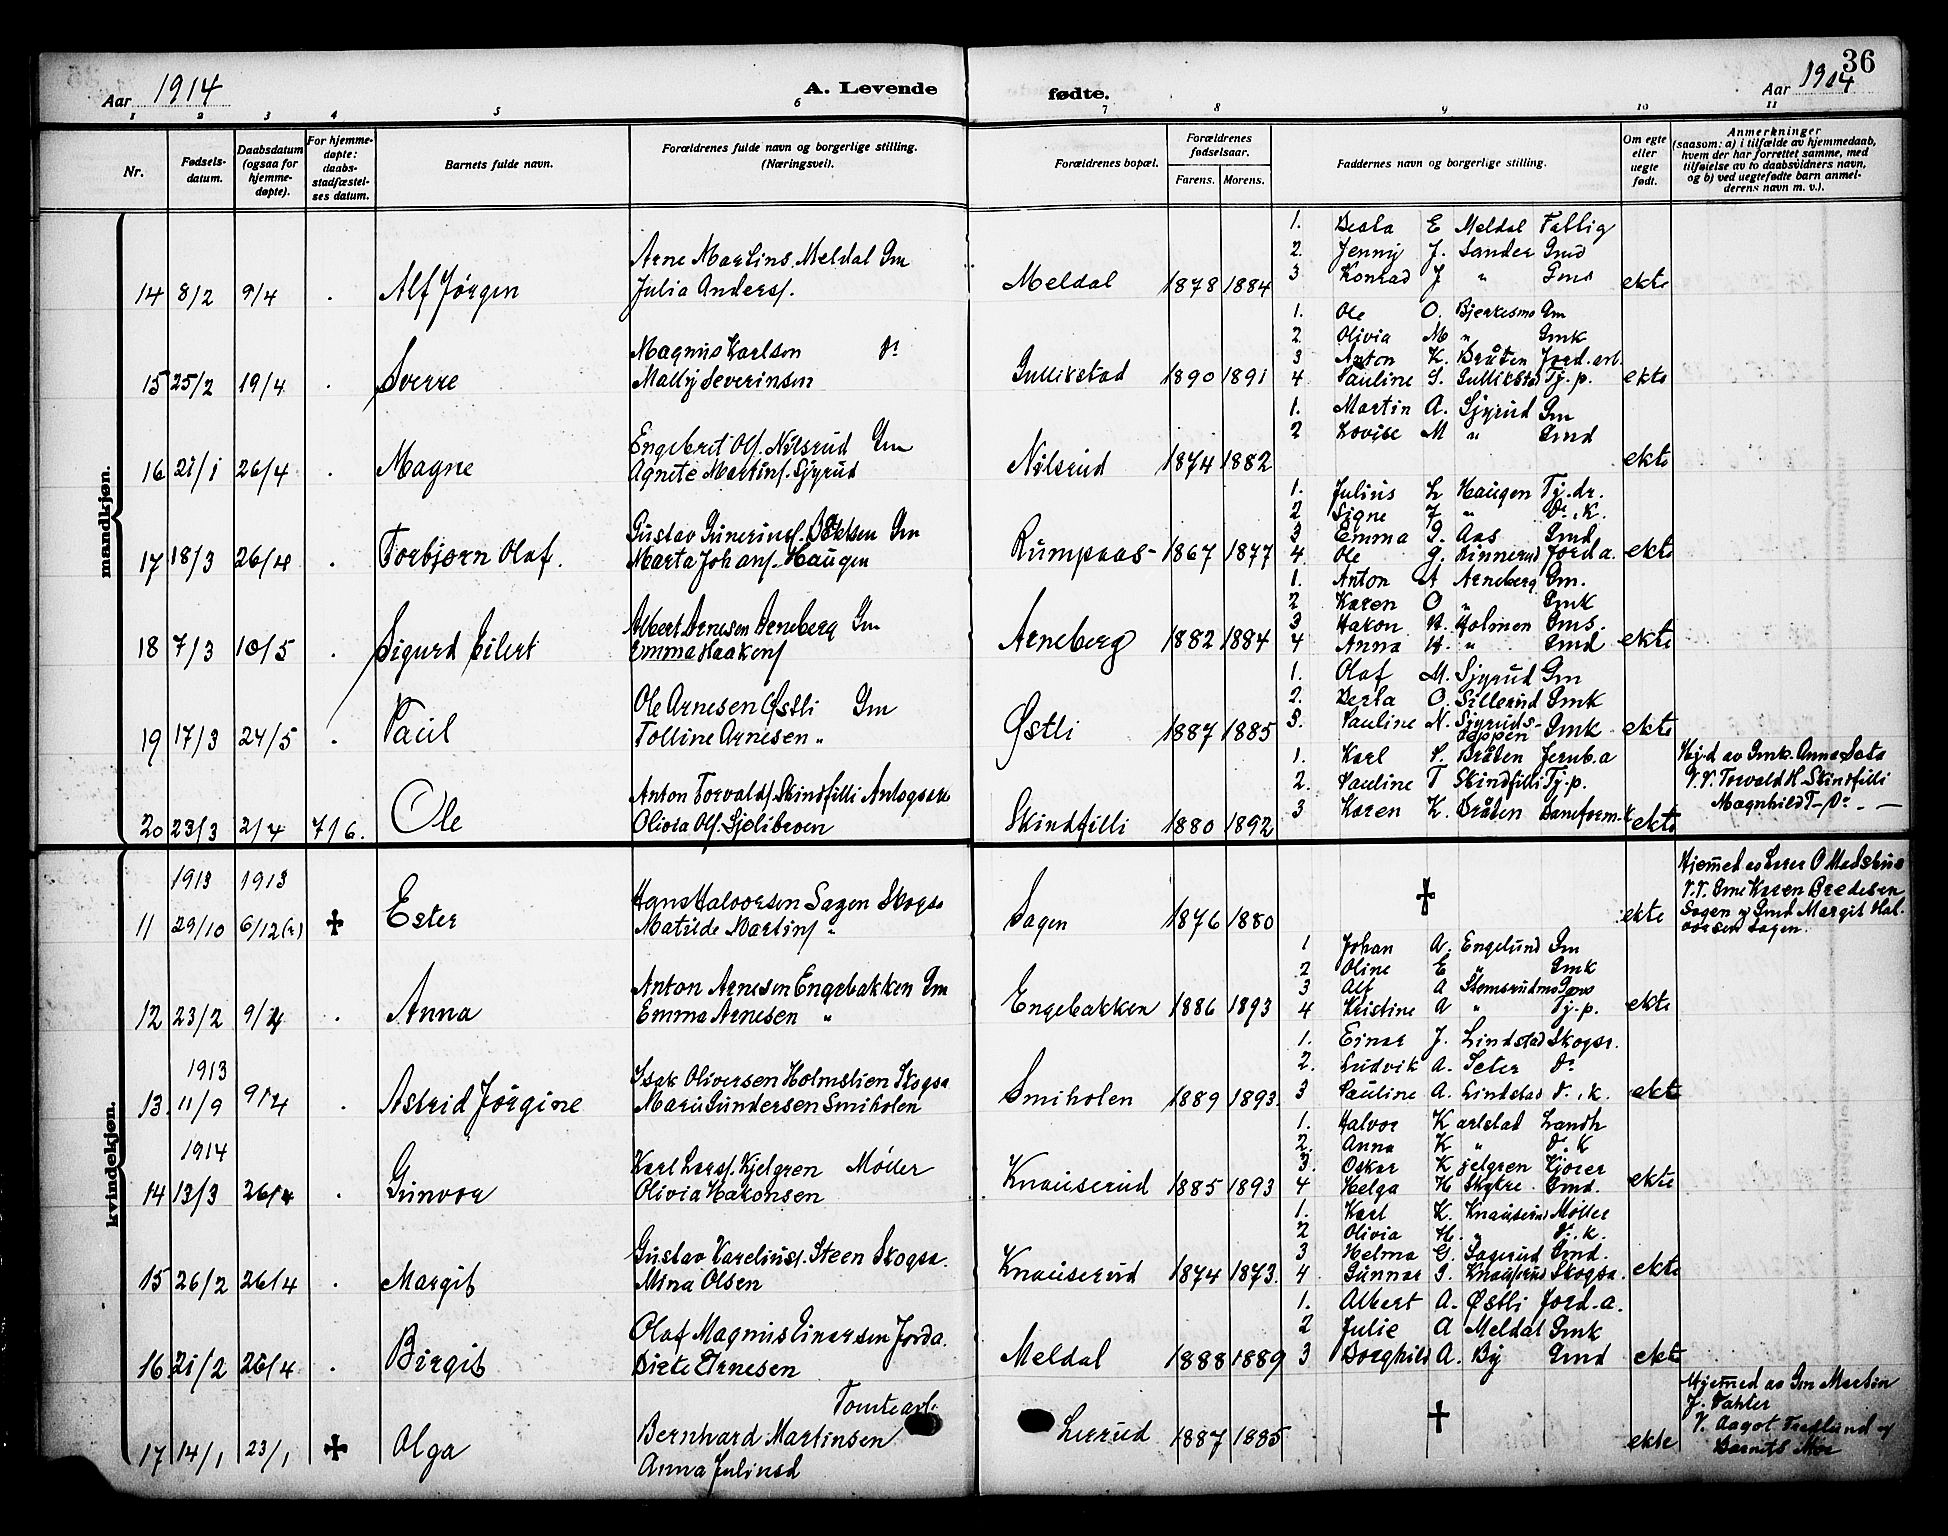 36
Aar 1914 A. Levende fødte. Aar 1914
1 2 3 4 5 6 7 8 9 10 11
Nr. Fødsels-datum. Daabsdatum (ogsaa for hjemme-døpte). For hjemme-døpte: daabs-stadfæstel-ses datum. Barnets fulde navn. Forældrenes fulde navn og borgerlige stilling. (Næringsvei). Forældrenes bopæl. Forældrenes fødselsaar. Farens. Morens. Faddernes navn og borgerlige stilling. Om egte eller uegte født. Anmerkninger (saasom: a) i tilfælde av hjemmedaab, hvem der har forrettet samme, med tilføielse av to daabsvidners navn, og b) ved uegtefødte barn anmel-derens navn m. v.).
mandkjøn.
1. Berta E Meldal Fattig
2. Jenny J. Sander Gmd
Arne Martins. Meldal Gm
3 Konrad J " Gms
14 8/2 9/4 . Alf Jørgen Julia Anders. Meldal 1878 1884 ekte
1. Ole O. Bjerkesmo Gm
2 Olivia M " Gmk
Magnus Karlsen Do
3 Anton K. Bråten Jord.arb.
15 25/2 19/4 . Sverre Mally Severinsen Gullikstad 1890 1891 4 Pauline S. Gullikstad Tj.p. ekte
1. Martin A. Sjyrud Gm
2 Lovise M " Gmd
Engebret Ols. Nilsrud Gm
16 21/1 26/4 . Magne Agnete Martins. Sjyrud Nilsrud 1874 1882 ekte
1. Julius L Haugen Tj.dr.
2 Signe J " Do.K.
3 Emma G. Aas Gmd
17 18/3 26/4 . Torbjørn Olaf. Marta Johans. Haugen Rumpaas- 1867 1877 4. Ole G. Linnerud Jord a. ekte
1. Anton A Arneberg Gm.
2 Karen O " Gmk
Albert Arnesen Arneberg Gm
3 Hakon H. Holmen Gms.
18 7/3 10/5 . Sigurd Eilert Emma Haakens Arneberg 1882 1884 4 Anna H. " Gmd ekte
1. Olaf M. Sjyrud Gm
2. Berta O. Sillerud Gmk
Ole Arnesen Østli Gm
19 17/3 24/5 . Paul Tolline Arnesen " Østli 1887 1885 3. Pauline N. Sjyruds-eppen Gmk ekte
1. Karl S. Bråten Jernb.a
Hj.d av Gmk. Anna Sata
2. Pauline T Skindfilli Tj.p.
V.V. Torvald H. Skindfilli
Anton Torvalds. Skindfilli Anlogsarb
Magnhild T- Do - -
20 23/3 2/4 7/6. Ole Olivia Ols. Sjølibroen Skindfilli 1880 1892 3 Karen K. Bråten Baneform.K ekte
kvindekjøn.
1913 1913
Hjemmed av Lærer O Madshus
V.V. Gme Karen Bredesen
Hans Halvorsen Sagen Skogsa
11 29/10 6/12(n) ✝ Ester Matilde Martins " Sagen 1876 1880 ✝ ekte
Sagen og Gmd Margit Hal-
vorsen Sagen.
1 Johan A. Engelund Gm
2 Oline E " Gmk
Anton Arnesen Engebakken Gm
3 Alf A Stemsrudmo Gms
12 23/2 9/4 . Anna Emma Arnesen " Engebakken 1886 1893 4 Kristine A " Tj.p. ekte
1. Einar J. Lindstad Skogsa.
2. Ludvik A. Seter Do
1913
Isak Oliversen Holmslien Skogsa
13. 11/9 9/4 . Astrid Jørgine Marie Gundersen Smiholen Smiholen 1889 1893. 3 Pauline A. Lindstad D.K. ekte
1. Halvor Karlstad Landh
2. Anna K " D. K
1914
Karl Larss. Kjelgren Møller
3. Oskar Kjelgren Kjører
14 13/3 26/4 . Gunvor Olivia Hakonsen Knauserud 1885 1893 4 Helga H Skytre Gmd. ekte
1. Karl K. Knauserud Møller
2 Olivia H. " D.K.
Gustav Kareliuss. Steen Skogsa.
3 Helma G. Sagerud Gmd.
15 26/2 26/4 . Margit Mina Olsen Knauserud 1874 1873. 4 Gunnar G. Knauserud Skogsa. ekte
1. Albert A. Østli Jord-a.
2 Julie A Meldal Gmk
Olaf Magnus Einarsen Jorda.
16 21/2 26/4 . Birgit Birte Arnesen Meldal 1888 1889 3 Borghild A. By Gmd ekte
Hjemmed av Gm Martin
J. Tahler
Tomtearb.
V. Aagot Tredlund og
Bernhard Martinsen
17 14/1 23/1 ✝ Olga Anna Juliusd Lierud 1887 1885 ✝ ekte
Barnets Mor